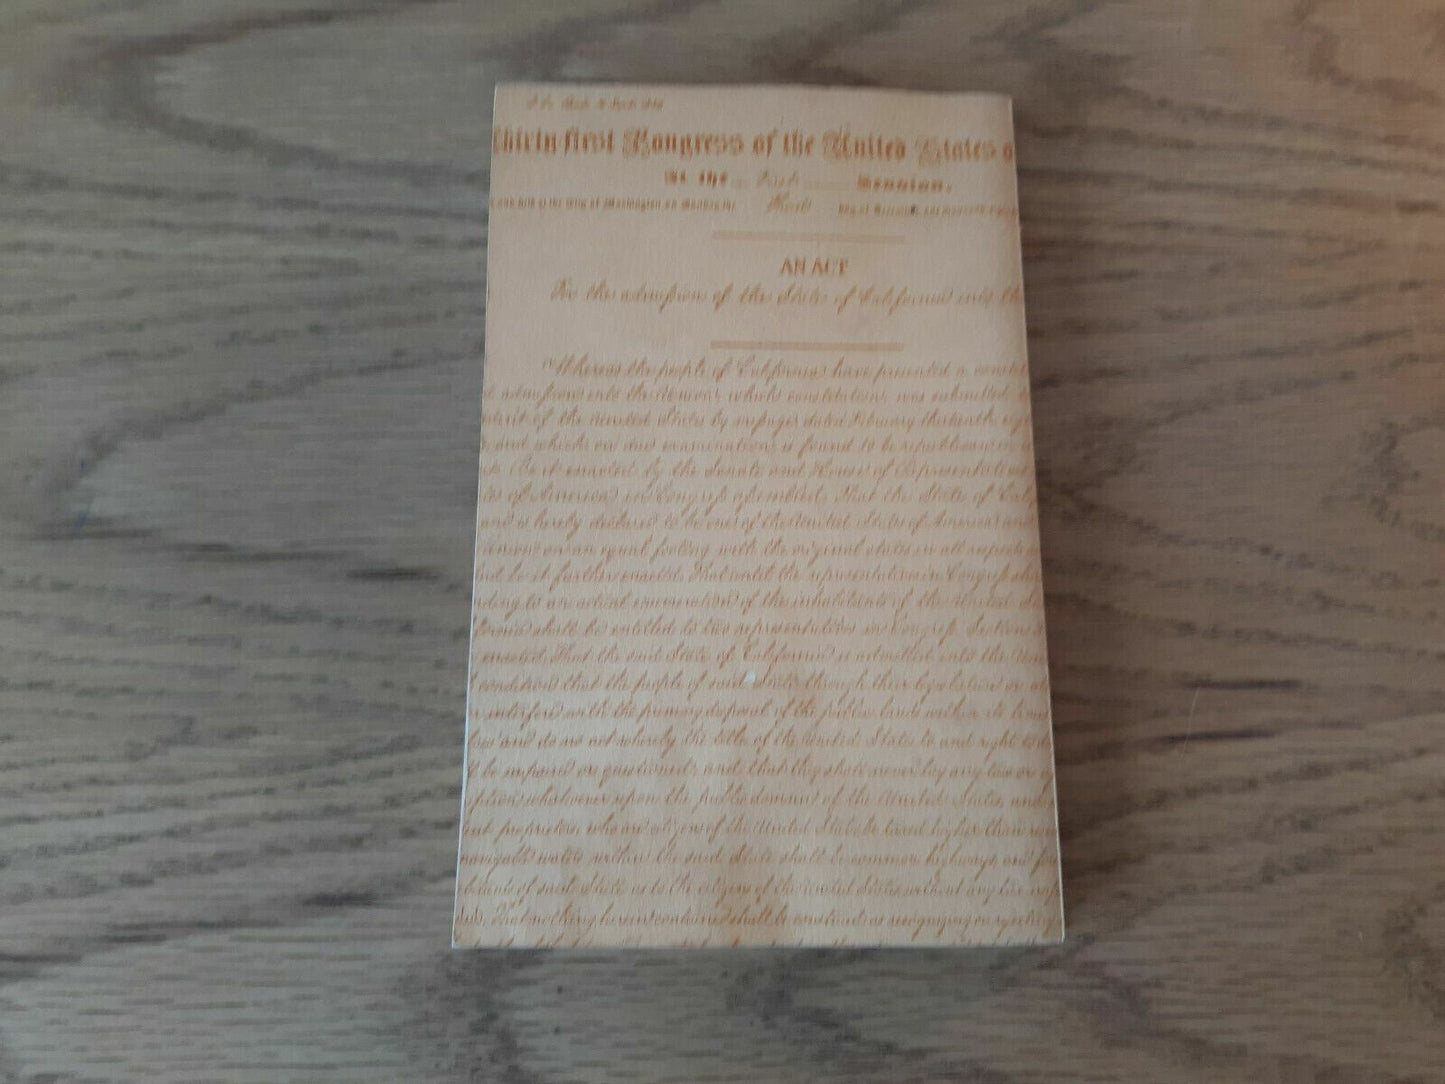 Thirty first Congress of the United States o
At the First Session,
Third
AN ACT
For the admission of the State of California into the
Whereas the people of California have presented a constit
admission into the Union, which constitution was submitted to
of the United States by message dated February thirteenth eigh
and which on due examination is found to be republican in
Be it enacted by the Senate and House of Representatives
tes of America in Congress assembled. That the State of Calif
and is hereby declared to be one of the United States of America and
Union on an equal footing with the original states in all respects
be it further enacted. That until the representatives in Congress shall
ding to an actual enumeration of the inhabitants of the United Sta
fornia shall be entitled to two representatives in Congress. Section 3
enacted. That the said State of California is admitted into the Union
condition that the people of said State through their legislature or
interfere with the primary disposal of the public lands within its limi
law and do no act whereby the title of the United States to and right to
be impaired or questioned; and that they shall never lay any tax or
ption whatsoever upon the public domain of the United States, and
ent proprietors, who are citizens of the United States be taxed higher than resi
navigable waters within the said State shall be common highways, and for
bitants of said State as to the citizens of the United States, without any tax imp
That nothing herein contained shall be construed as recognizing or rejecting